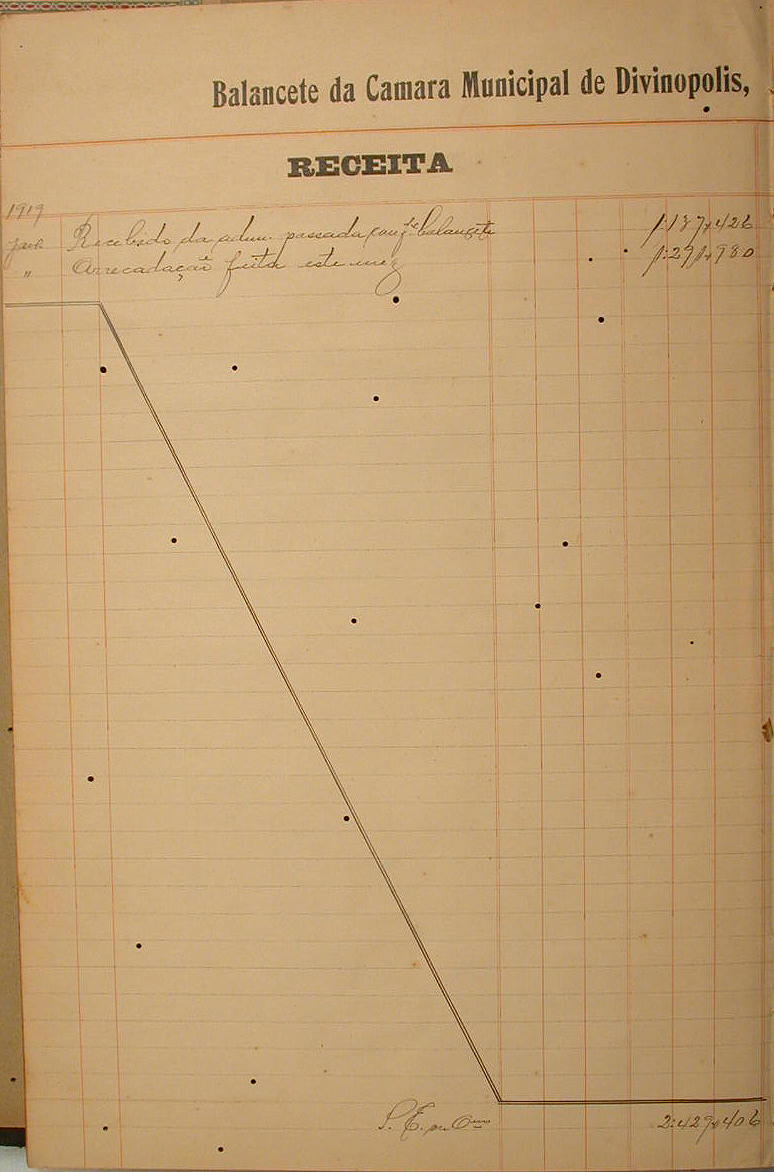 Balancete da Camara Municipal de Divinopolis,
RECEITA
1919
Janº Recebido da adm. passada, conf.te balancete 1:137$426
" Arrecadação feita este mez 1:291$980
S. E. ou O.
2:429$406